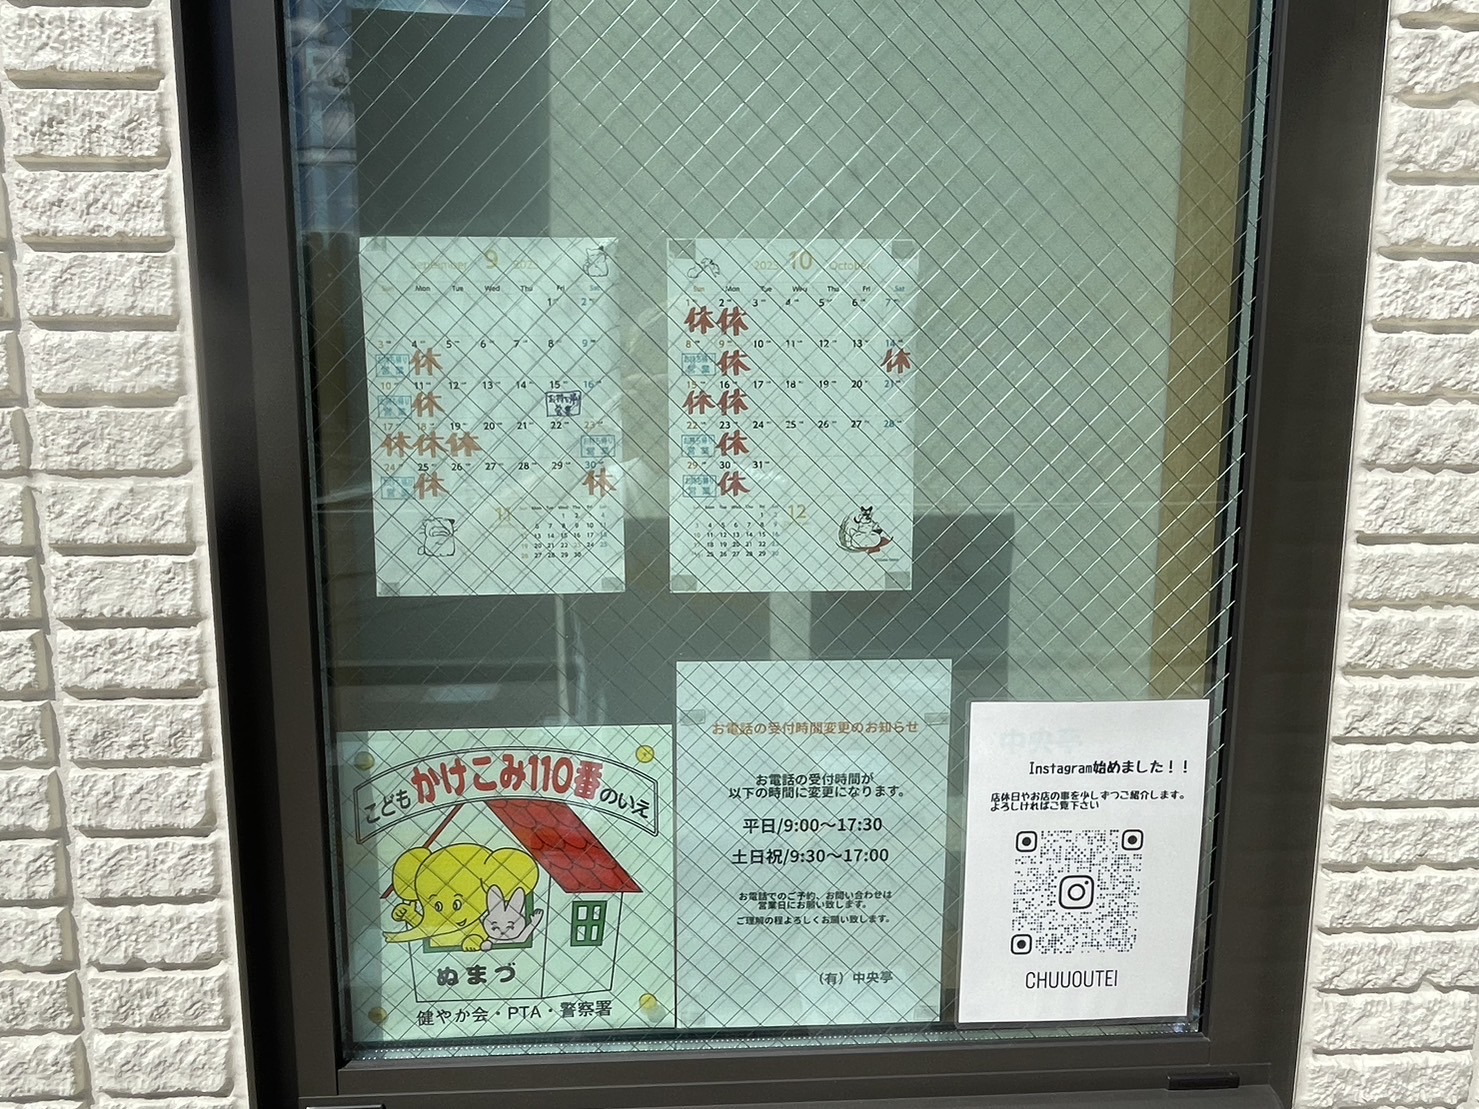 September 9 2023
Sun Mon Tue Wed Thu Fri Sat
1 2
3 4 5 6 7 8 9
お持ち帰り営業 休
10 11 12 13 14 15 16
お持ち帰り営業 休 お持ち帰り営業
17 18 19 20 21 22 23
休 休 休 お持ち帰り営業
24 25 26 27 28 29 30
お持ち帰り営業 休 休
11
2023 10 October
Sun Mon Tue Wed Thu Fri Sat
1 2 3 4 5 6 7
休 休
8 9 10 11 12 13 14
お持ち帰り営業 休 休
15 16 17 18 19 20 21
休 休
22 23 24 25 26 27 28
お持ち帰り営業 休
29 30 31
お持ち帰り営業 休
12
こども かけこみ110番 のいえ
ぬまづ
健やか会・PTA・警察署
お電話の受付時間変更のお知らせ
お電話の受付時間が
以下の時間に変更になります。
平日/9:00〜17:30
土日祝/9:30〜17:00
お電話でのご予約、お問い合わせは
営業日にお願い致します。
ご理解の程よろしくお願い致します。
（有）中央亭
Instagram始めました！！
店休日やお店の事を少しずつご紹介します。
よろしければご覧下さい
CHUUOUTEI